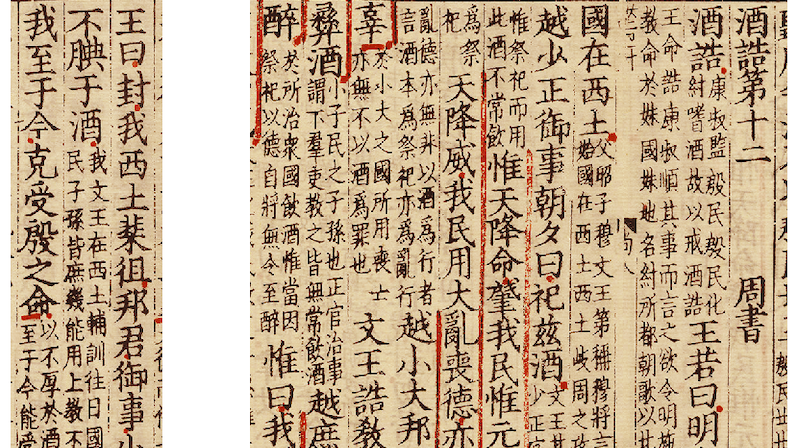 酒誥第十二　周書
酒誥
康叔監殷民殷民化
紂嗜酒故以戒酒誥
王若曰明
王命誥康叔順其事而言之欲令明
教命於妹國妹地名紂所都朝歌以
國在西土
父昭子穆文王第稱穆將言
始國在西土西土岐周之政
越少正御事朝夕曰祀茲酒
文王其
少正官
惟祭祀而用
此酒不常飲
惟天降命肇我民惟元
為祭
祀
天降威我民用大亂喪德亦
亂德亦無非以酒為行者
言酒本為祭祀亦為亂行
越小大邦
辜
於小大之國所用喪亡
亦無不以酒為罪也
文王誥教
彝酒
小子民之子孫也正官治事
謂下羣吏教之皆無常飲酒
越庶
醉
於所治衆國飲酒惟當因
祭祀以德自將無令至醉
惟曰我
王曰封我西土棐徂邦君御事小
不腆于酒
我文王在西土輔訓往日國
民子孫皆庶幾能用上教不
我至于今克受殷之命
以不厚於酒
至于今能受